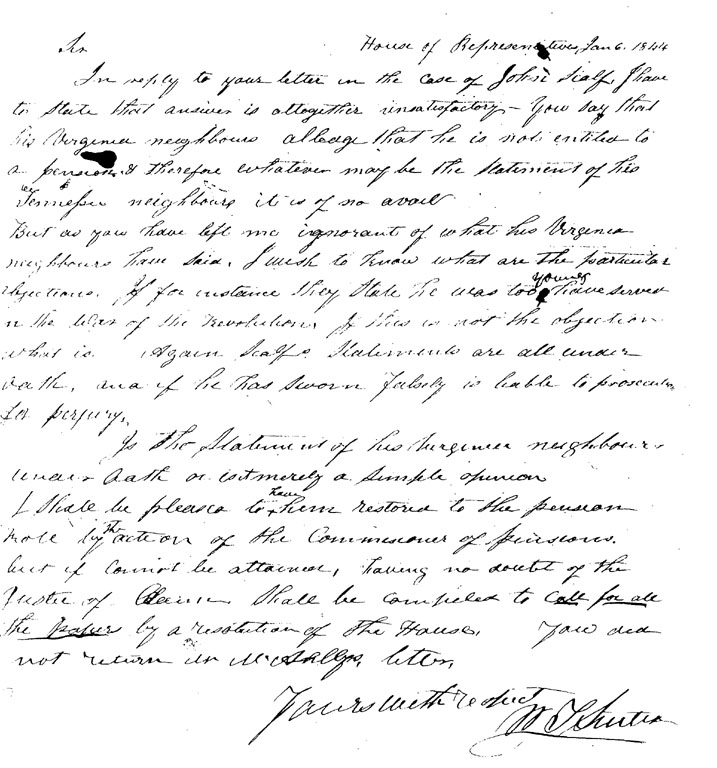 Sir House of Representatives, Jan 6. 1844
In reply to your letter in the case of John Scalf, I have
to state that answer is altogether unsatisfactory - You say that
his Virginia neighbours alledge that he is not entitled to
a pension & therefore whatever may be the statement of his
Tennessee neighbours it is of no avail
But as you have left me ignorant of what his Virginia
neighbours have said. I wish to know what are the particular
objections. If for instance they state he was too young to have served
in the War of the Revolution. If this is not the objection
what is. Again Scalfs statements are all under
oath, and if he has sworn falsely is liable to prosecution
for perjury.
Is the statement of his Virginia neighbours
under oath or is it merely a simple opinion
I shall be pleased to have him restored to the pension
role by the action of the Commissioner of pensions.
but if cannot be attained, having no doubt of the
Justice of Claim shall be compeled to call for all
the paper by a resolution of the House. You did
not return letter.
Yours with respect
W T Senter